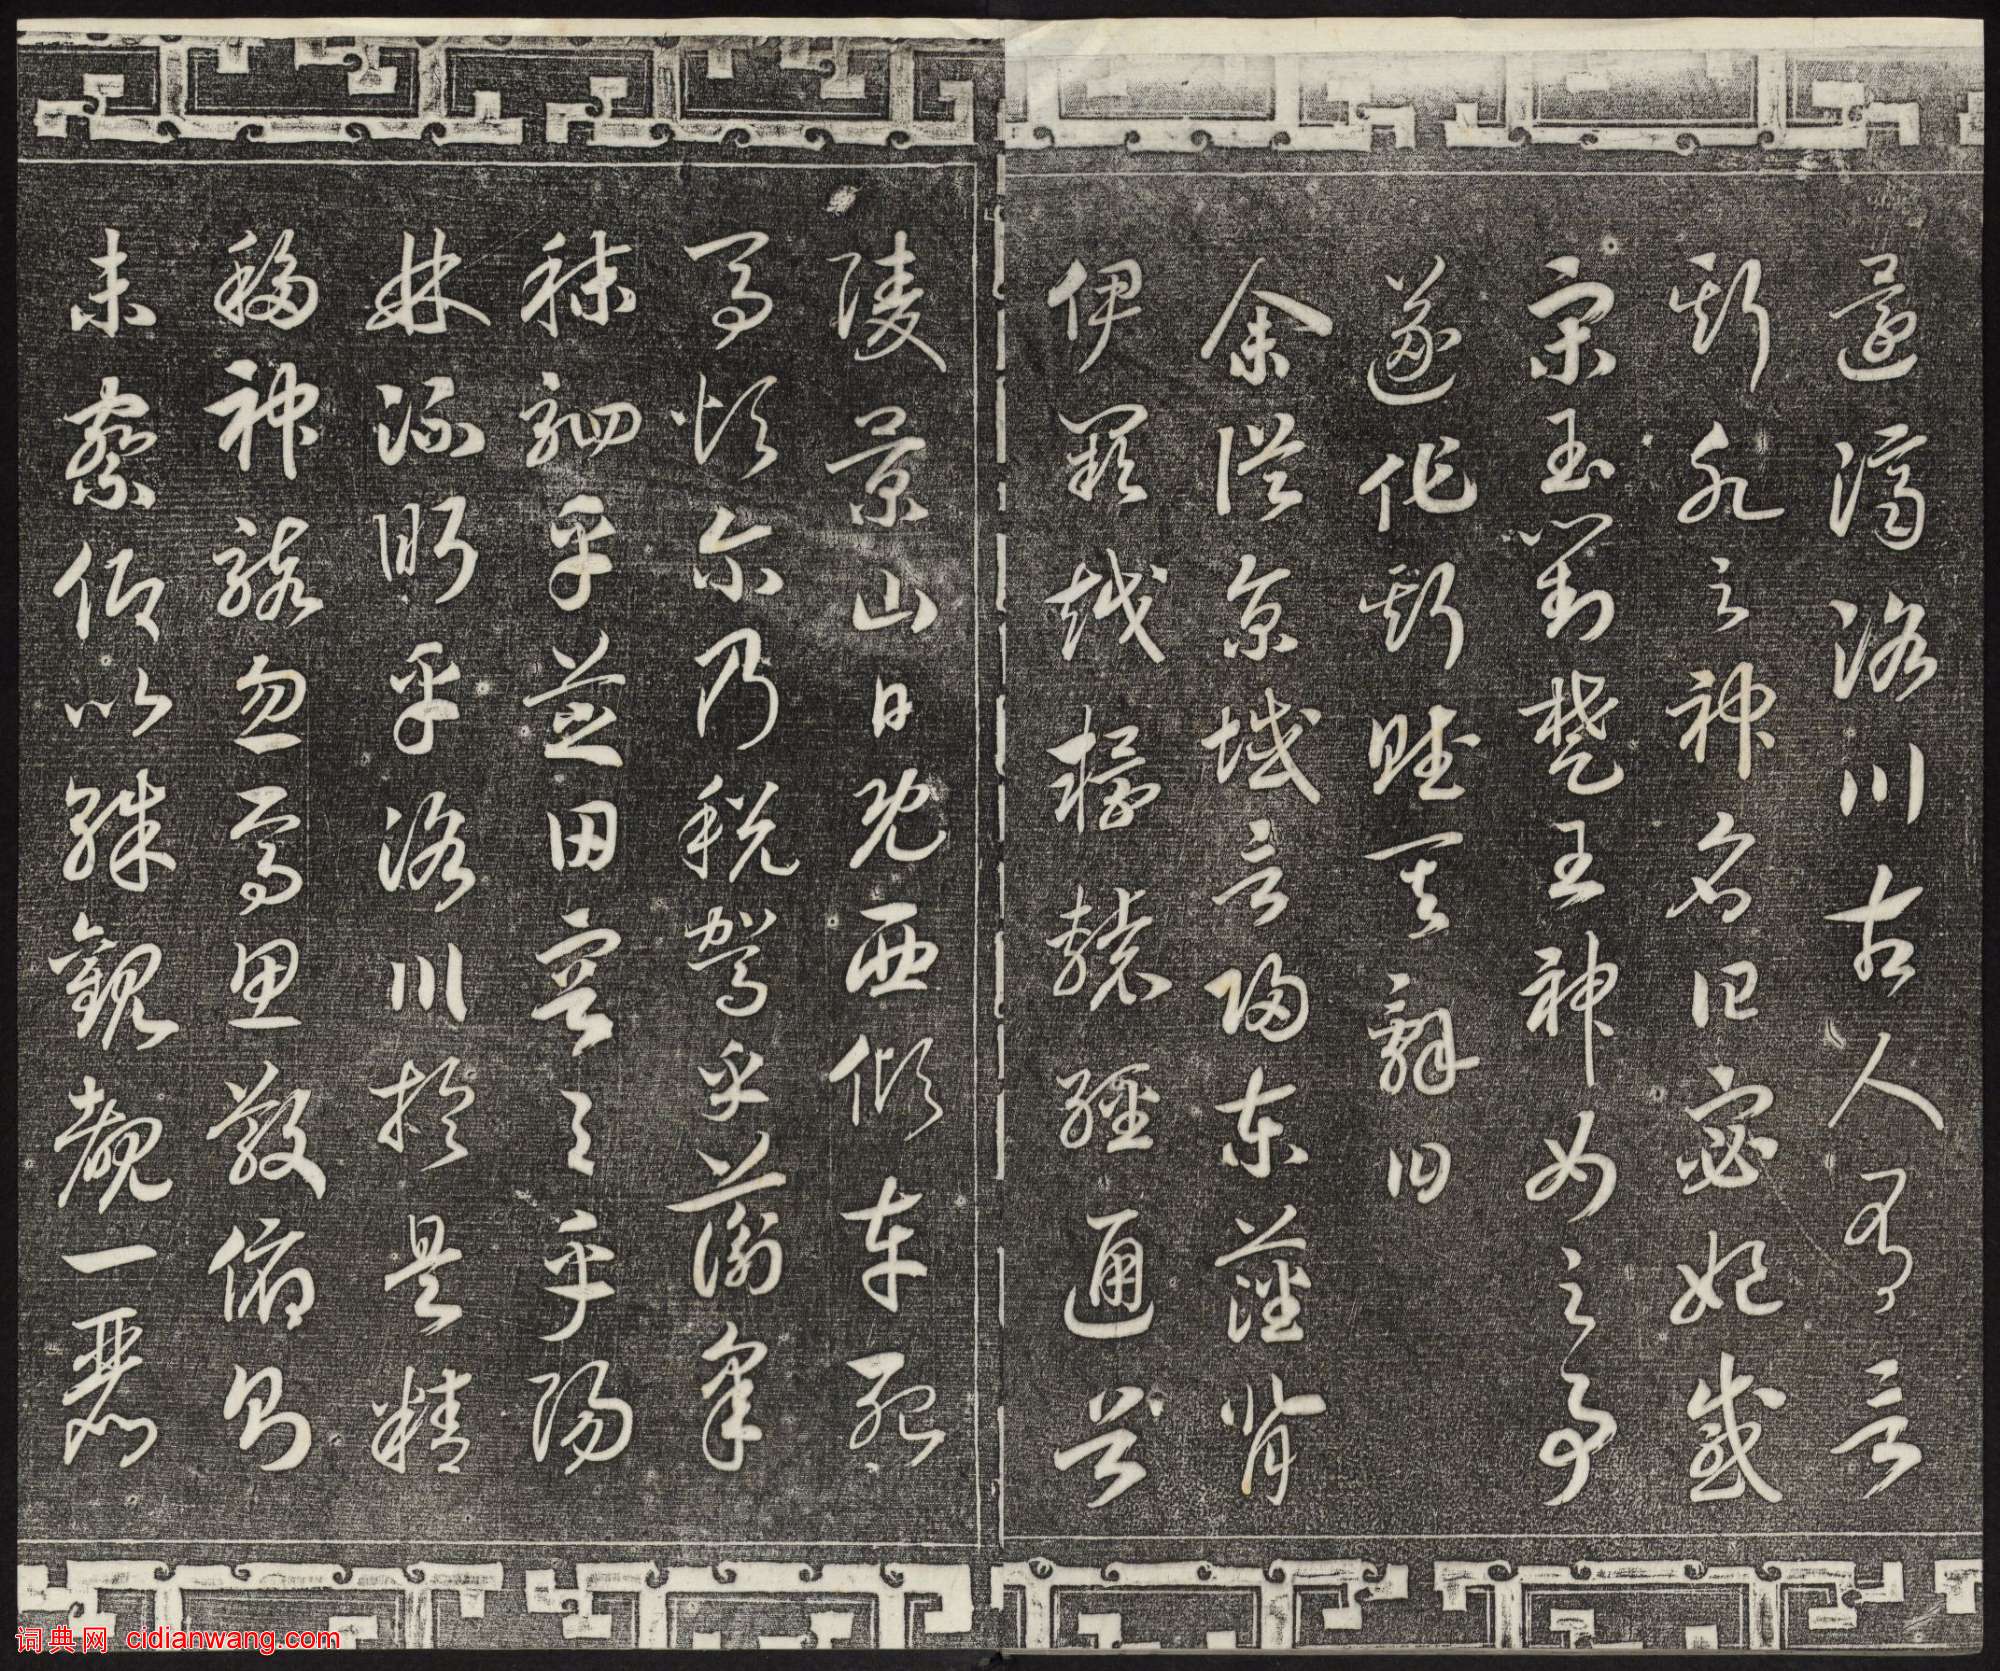 還濟洛川古人有言
斯水之神名曰宓妃感
宋玉對楚王神女之事
遂作斯賦其辭曰
余從京域言歸東藩背
伊闕越轘轅經通谷
陵景山日既西傾車殆
馬煩尔乃税駕乎蘅皋
秣駟乎芝田容與乎陽
林流眄乎洛川於是精
移神駭忽焉思散俯則
未察仰以殊觀覩一麗
词典网 cidianwang.com